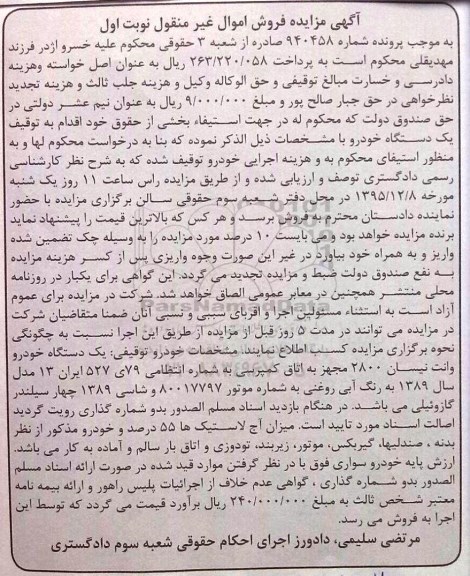 آگهی مزایده فروش اموال غیر منقول نوبت اول
به موجب پرونده شماره ۹۴۰۴۵۸ صادره از شعبه ۳ حقوقی محکوم علیه خسرو اژدر فرزند
مهدیقلی محکوم است به پرداخت ۲۶۳/۲۲۰/۰۵۸ ریال به عنوان اصل خواسته وهزینه
دادرسی و خسارت مبالغ توقیفی و حق الوکاله وکیل و هزینه جلب ثالث و هزینه تجدید
نظرخواهی در حق جبار صالح پور و مبلغ ۹/۰۰۰/۰۰۰ ریال به عنوان نیم عشر دولتی در
حق صندوق دولت که محکوم له در جهت استیفاء بخشی از حقوق خود اقدام به توقیف
یک دستگاه خودرو با مشخصات ذیل الذکر نموده که بنا به درخواست محکوم لها و به
منظور استیفای محکوم به و هزینه اجرایی خودرو توقیف شده که به شرح نظر کارشناسی
رسمی دادگستری توصف و ارزیابی شده و از طریق مزایده راس ساعت ۱۱ روز یک شنبه
مورخه ۱۳۹۵/۱۲/۸ در محل دفتر شعبه سوم حقوقی سالن برگزاری مزایده با حضور
نماینده دادستان محترم به فروش برسد و هر کس که بالاترین قیمت را پیشنهاد نماید
برنده مزایده خواهد بود ومی بایست ۱۰ درصد مورد مزایده را به وسیله چک تضمین شده
واریز و به همراه خود بیاورد در غیر این صورت وجوه واریزی پس از کسر هزینه مزایده
به نفع صندوق دولت ضبط و مزایده تجدید می گردد. این گواهی برای یکبار در روزنامه
محلی منتشر همچنین در معابر عمومی الصاق خواهد شد. شرکت در مزایده برای عموم
آزاد است به استثناء مسئولین اجرا و اقربای سببی و نسبی آنان ضمنا متقاضیان شرکت
در مزایده می توانند در مدت ۵ روز قبل از مزایده از طریق این اجرا نسبت به چگونگی
نحوه برگزاری مزایده کسب اطلاع نمایند. مشخصات خودرو توقیفی: یک دستگاه خودرو
وانت نیسان ۲۸۰۰ مجهز به اتاق کمپرسی به شماره انتظامی ۷۹ی ۵۲۷ ایران ۱۳ مدل
سال ۱۳۸۹ به رنگ آبی روغنی به شماره موتور ۸۰۰۱۷۷۹۷ و شاسی ۱۳۸۹ چهار سیلندر
گازوئیلی می باشد. در هنگام بازدید اسناد مسلم الصدور بدو شماره گذاری رویت گردید
اصالت اسناد مورد تایید است. میزان آج لاستیک ها ۵۵ درصد و خودرو مذکور از نظر
بدنه ، صندلیها، گیربکس. موتور، زیربند، تودوزی و اتاق بار سالم و آماده به کار می باشد.
ارزش پایه خودرو سواری فوق با در نظر گرفتن موارد قید شده در صورت ارائه اسناد مسلم
الصدور بدو شماره گذاری ، گواهی عدم خلاف از اجرائیات پلیس راهور و ارائه بیمه نامه
معتبر شخص ثالث به مبلغ ۲۴۰/۰۰۰/۰۰۰ ریال برآورد قیمت می گردد که توسط این
اجرا به فروش می رسد.
مرتضی سلیمی، دادورز اجرای احکام حقوقی شعبه سوم دادگستری